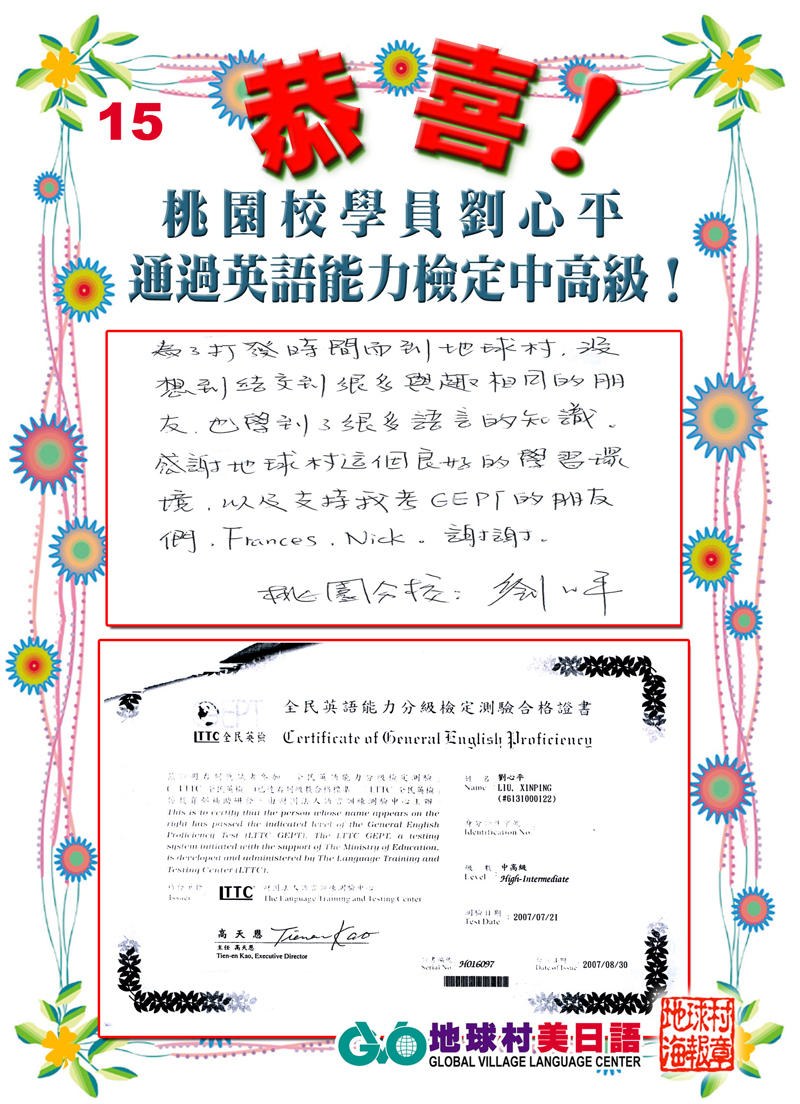 恭喜!
15
桃園校學員劉心平
通過英語能力檢定中高級!
為了打發時間而到地球村, 沒
想到結交到很多興趣相同的朋
友, 也學到了很多語言的知識。
感謝地球村這個良好的學習環
境, 以及支持我考GEPT的朋友
們, Frances, Nick。謝謝。
桃園分校: 劉心平
GEPT
LTTC 全民英檢
全民英語能力分級檢定測驗合格證書
Certificate of General English Proficiency
This is to certify that the person whose name appears on the
right has passed the indicated level of the General English
Proficiency Test (LTTC GEPT). The LTTC GEPT, a testing
system initiated with the support of The Ministry of Education,
is developed and administered by The Language Training and
Testing Center (LTTC).
Issuer
LTTC 財團法人語言訓練測驗中心
The Language Training and Testing Center
高天恩 Tien-en Kao
主任 高天恩
Tien-en Kao, Executive Director
姓名 劉心平
Name : LIU, XINPING
(#6131000122)
Identification No.:
級數 中高級
Level : High-Intermediate
測驗日期
Test Date : 2007/07/21
Serial No. H016097
Date of Issue 2007/08/30
GVO 地球村美日語
GLOBAL VILLAGE LANGUAGE CENTER
地球村
海報章